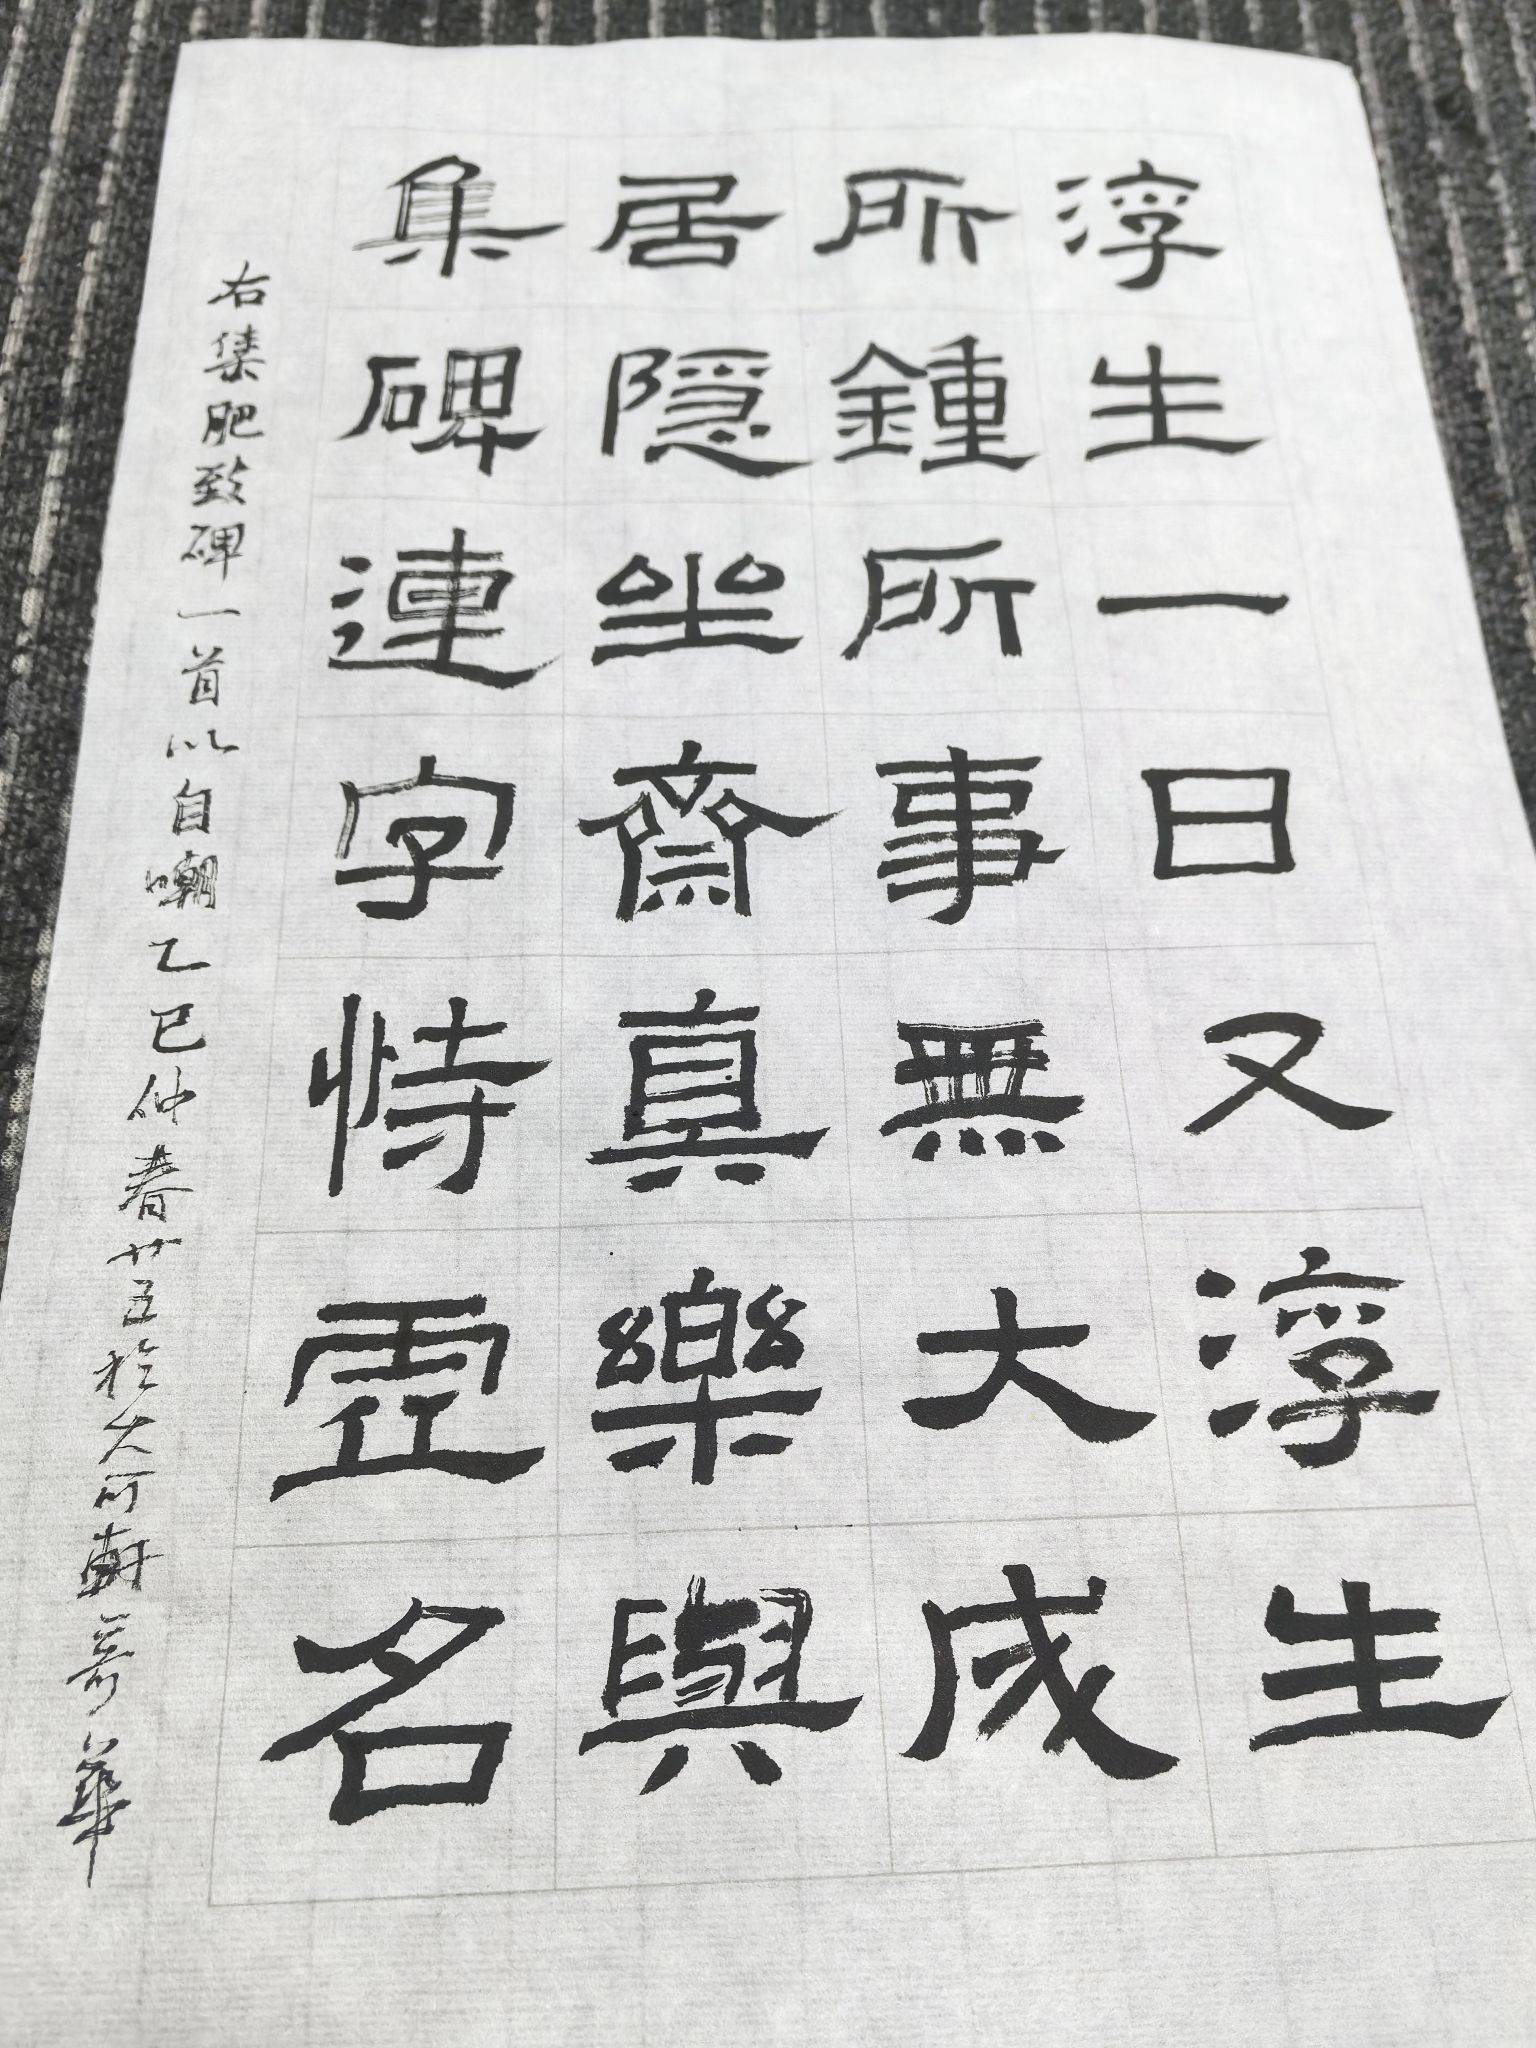 浮生一日又浮生
所鍾所事無大成
居隱坐齋真樂與
集碑連字恃虛名
右集肥致碑一首以自嘲乙巳仲春廿五於大可軒奇華